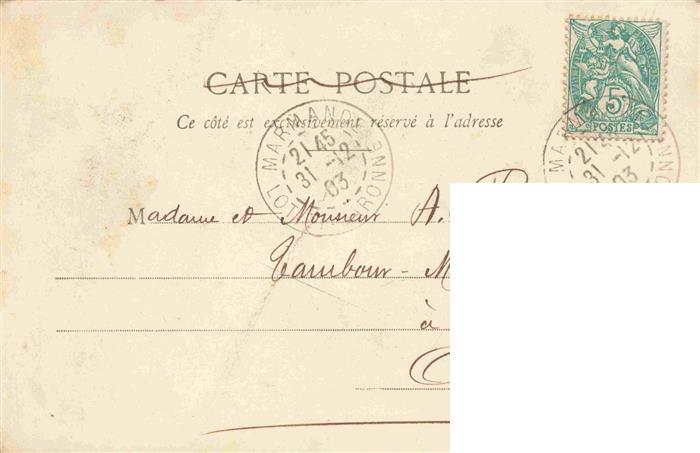 CARTE POSTALE
Ce côté est exclusivement réservé à l'adresse
5c
POSTES
MARMANDE
21 45
31 -12
03
LOT ET GARONNE
MARMANDE
21 45
31 -12
03
GARONNE
Madame et Monsieur A.
Tambour-M
à